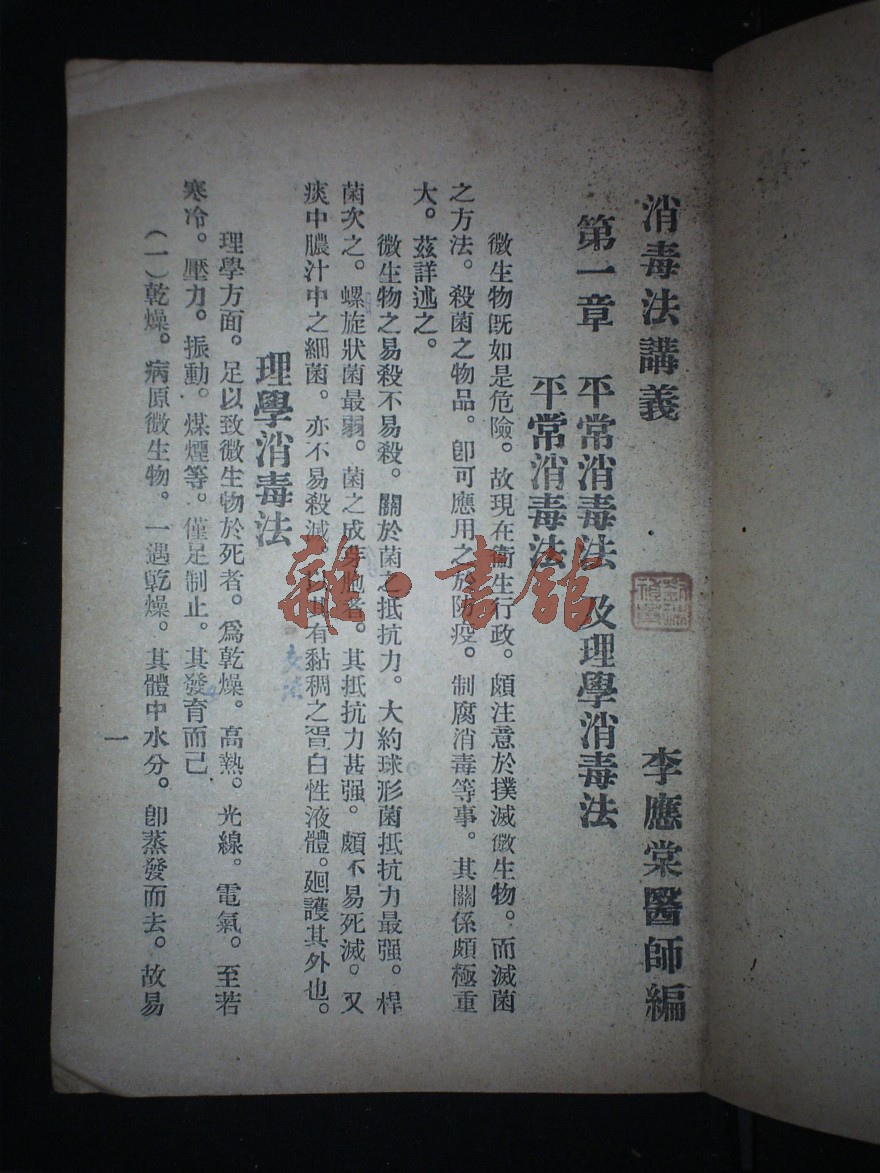 消毒法講義
李應棠醫師編
第一章 平常消毒法 及理學消毒法
平常消毒法
微生物既如是危險。故現在衞生行政。頗注意於撲滅微生物。而滅菌
之方法。殺菌之物品。卽可應用之於防疫。制腐消毒等事。其關係頗極重
大。茲詳述之。
微生物之易殺不易殺。關於菌之抵抗力。大約球形菌抵抗力最强。桿
菌次之。螺旋狀菌最弱。菌之成芽胞者。其抵抗力甚强。頗不易死滅。又
痰中膿汁中之細菌。亦不易殺滅。以其有黏稠之蛋白性液體。廻護其外也。
理學消毒法
理學方面。足以致微生物於死者。爲乾燥。高熱。光線。電氣。至若
寒冷。壓力。振動。煤煙等。僅足制止。其發育而己
(一)乾燥。病原微生物。一遇乾燥。其體中水分。卽蒸發而去。故易
一
雜·書館